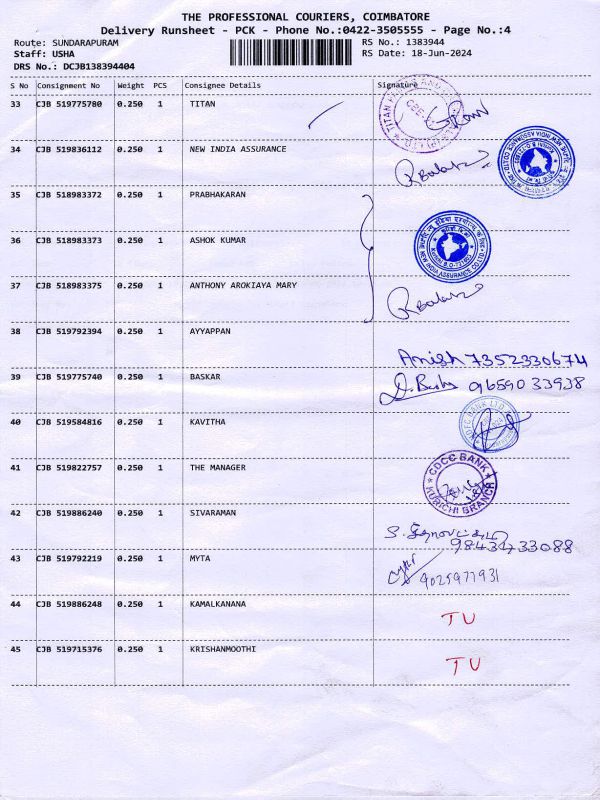 THE PROFESSIONAL COURIERS, COIMBATORE
Delivery Runsheet - PCK - Phone No.:0422-3505555 - Page No.:4
Route: SUNDARAPURAM RS No.: 1383944
Staff: USHA RS Date: 18-Jun-2024
DRS No.: DCJB138394404
S No Consignment No Weight PCS Consignee Details Signature
33 CJB 519775780 0.250 1 TITAN
34 CJB 519836112 0.250 1 NEW INDIA ASSURANCE
35 CJB 518983372 0.250 1 PRABHAKARAN
36 CJB 518983373 0.250 1 ASHOK KUMAR
37 CJB 518983375 0.250 1 ANTHONY AROKIAYA MARY
38 CJB 519792394 0.250 1 AYYAPPAN
Anish 7352330674
39 CJB 519775740 0.250 1 BASKAR
96590 33938
40 CJB 519584816 0.250 1 KAVITHA
41 CJB 519822757 0.250 1 THE MANAGER
CDCC BANK
KURICHI BRANCH
42 CJB 519886240 0.250 1 SIVARAMAN
43 CJB 519792219 0.250 1 MYTA
9025977931
44 CJB 519886248 0.250 1 KAMALKANANA
TU
45 CJB 519715376 0.250 1 KRISHANMOOTHI
TU